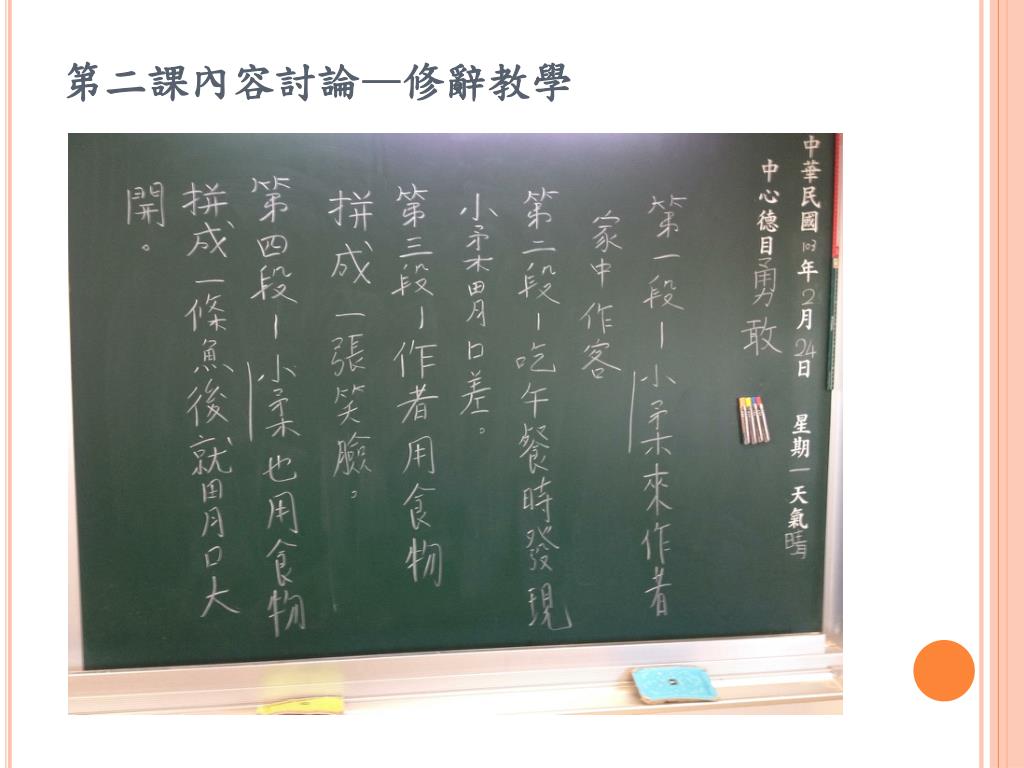 第二課內容討論—修辭教學
中華民國103年2月24日 星期一 天氣晴
中心德目勇敢
第一段—小柔來作者
家中作客
第二段—吃午餐時發現
小柔胃口差。
第三段—作者用食物
拼成一張笑臉。
第四段—小柔也用食物
拼成一條魚後就胃口大
開。